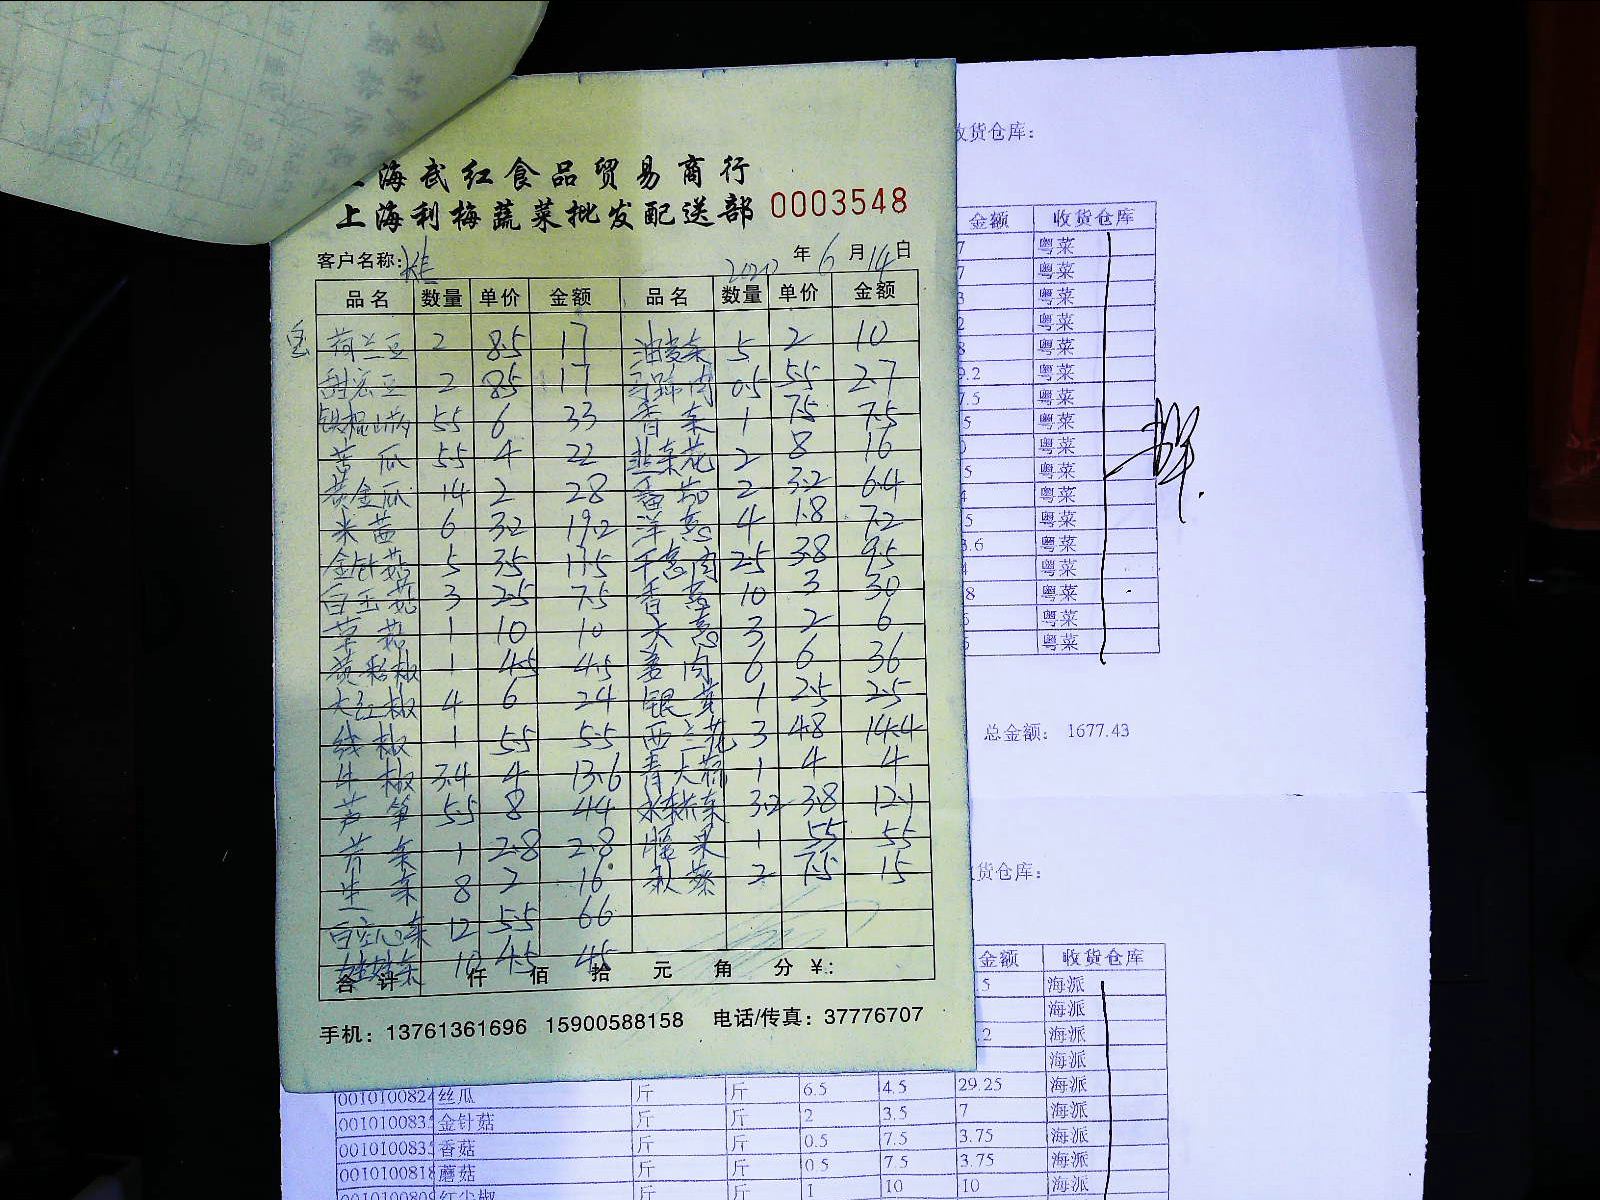 海武红食品贸易商行
上海利梅蔬菜批发配送部 0003548
客户名称: 年 6 月 14 日
品名 数量 单价 金额 品名 数量 单价 金额
荷兰豆 2 8.5 17 油麦菜 5 2 10
甜宏豆 2 8.5 17 肉 0.5 5.5 2.7
铁棍山药 5.5 6 33 香菜 1 7.5 7.5
苦瓜 5.5 4 22 韭菜花 2 8 16
黄金瓜 14 2 28 番茄 2 3.2 6.4
米苋 6 3.2 19.2 洋葱 4 1.8 7.2
金针菇 5 3.5 17.5 干葱肉 2.5 3.8 9.5
白玉菇 3 2.5 7.5 香葱 10 3 30
草菇 1 10 10 大葱 3 2 6
黄彩椒 1 4.5 4.5 姜肉 6 6 36
大红椒 4 6 24 银芽 1 2.5 2.5
线椒 1 5.5 5.5 西兰花 3 4.8 14.4
牛椒 3.4 4 13.6 青大蒜 1 4 4
芦笋 5.5 8 44 3.2 3.8 12.1
芹菜 1 2.8 2.8 果 1 5.5 5.5
生菜 8 2 16 2 7.5 15
白空心菜 12 5.5 66
娃娃菜 10 4.5 45
合计 仟 佰 拾 元 角 分 ¥:
手机: 13761361696 15900588158 电话/传真: 37776707
收货仓库:
金额 收货仓库
7 粤菜
7 粤菜
3 粤菜
2 粤菜
8 粤菜
9.2 粤菜
7.5 粤菜
5 粤菜
粤菜
5 粤菜
4 粤菜
5 粤菜
3.6 粤菜
粤菜
8 粤菜
粤菜
粤菜
总金额: 1677.43
货仓库:
金额 收货仓库
.5 海派
海派
.2 海派
海派
0010100824 丝瓜 斤 斤 6.5 4.5 29.25 海派
001010083 金针菇 斤 斤 2 3.5 7 海派
001010083 香菇 斤 斤 0.5 7.5 3.75 海派
0010100818 蘑菇 斤 斤 0.5 7.5 3.75 海派
红尖椒 斤 斤 1 10 10 海派